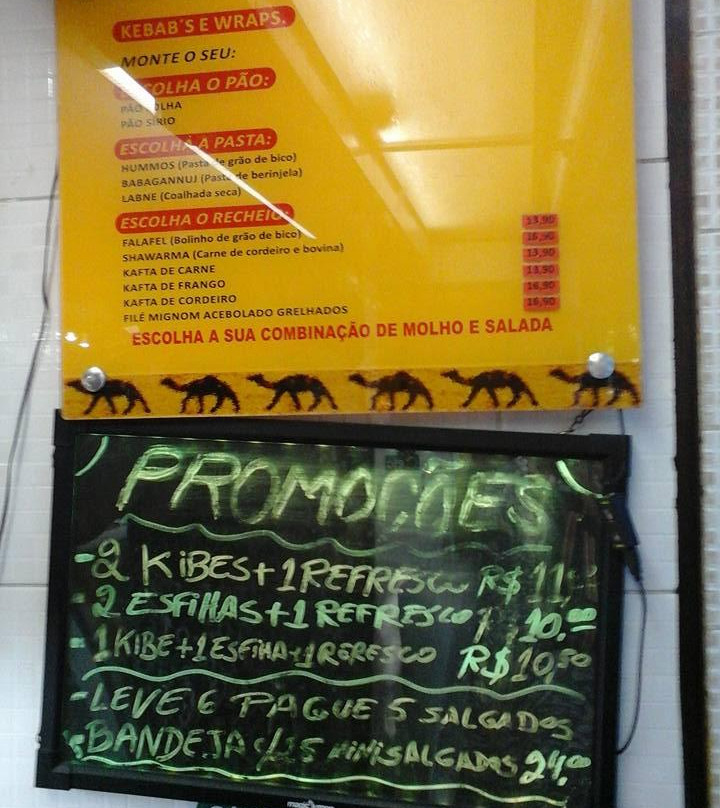 KEBAB'S E WRAPS.
MONTE O SEU:
ESCOLHA O PÃO:
PÃO FOLHA
PÃO SÍRIO
ESCOLHA A PASTA:
HUMMOS (Pasta de grão de bico)
BABAGANNUJ (Pasta de berinjela)
LABNE (Coalhada seca)
ESCOLHA O RECHEIO:
FALAFEL (Bolinho de grão de bico) 13,90
SHAWARMA (Carne de cordeiro e bovina) 16,90
KAFTA DE CARNE 13,90
KAFTA DE FRANGO 13,90
KAFTA DE CORDEIRO 16,90
FILÉ MIGNOM ACEBOLADO GRELHADOS 16,90
ESCOLHA A SUA COMBINAÇÃO DE MOLHO E SALADA
PROMOÇÕES
-2 KIBES+1REFRESCO R$ 11,
-2 ESFIHAS+1 REFRESCO 10.00
-1KIBE+1ESFIHA+1REFRESCO R$10,50
-LEVE 6 PAGUE 5 SALGADOS
BANDEJA c/25 MINISALGADOS 24,00